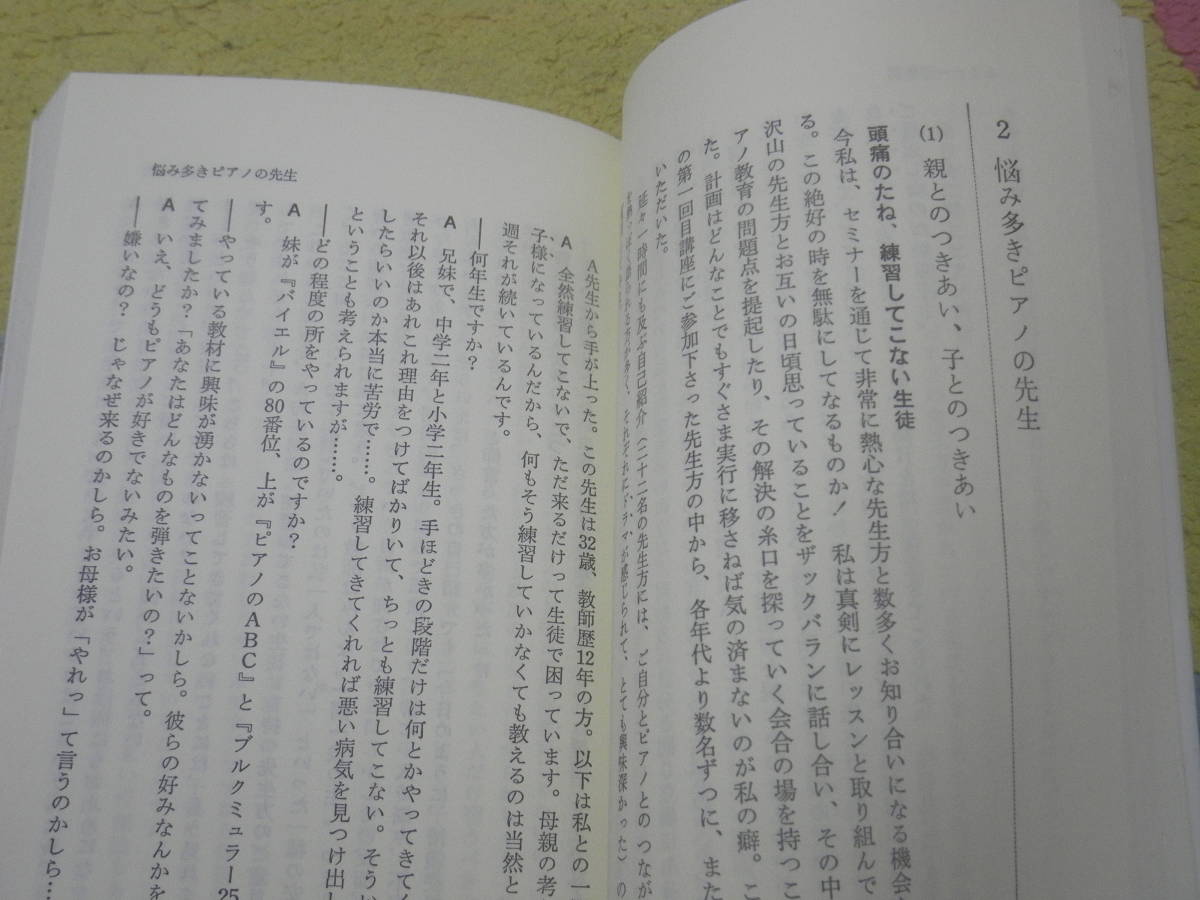 2 悩み多きピアノの先生
(1) 親とのつきあい、子とのつきあい
頭痛のたね、練習してこない生徒
今私は、セミナーを通じて非常に熱心な先生方と数多くお知り合いになる機会
る。この絶好の時を無駄にしてなるものか！ 私は真剣にレッスンと取り組んで
沢山の先生方とお互いの日頃思っていることをザックバランに話し合い、その中
アノ教育の問題点を提起したり、その解決の糸口を探っていく会合の場を持つこ
た。計画はどんなことでもすぐさま実行に移さねば気の済まないのが私の癖。こ
の第一回目講座にご参加下さった先生方の中から、各年代より数名ずつに、また
いただいた。
延々一時間にも及ぶ自己紹介（二十二名の先生方には、ご自分とピアノとのつなが
それぞれにドラマが感じられて、とても興味深かった）の
A先生から手が上った。この先生は32歳、教師歴12年の方。以下は私との一
A 全然練習してこないで、ただ来るだけって生徒で困っています。母親の考
子様になっているんだから、何もそう練習していかなくても教えるのは当然と
週それが続いているんです。
──何年生ですか？
A 兄妹で、中学二年と小学二年生。手ほどきの段階だけは何とかやってきてく
それ以後はあれこれ理由をつけてばかりいて、ちっとも練習してこない。そうか
したらいいのか本当に苦労で……。練習してきてくれれば悪い病気を見つけ出し
ということも考えられますが……。
──どの程度の所をやっているのですか？
A 妹が『バイエル』の80番位、上が『ピアノのABC』と『ブルクミュラー25
す。
──やっている教材に興味が湧かないってことないかしら。彼らの好みなんかを
てみましたか？「あなたはどんなものを弾きたいの？」って。
A いえ、どうもピアノが好きでないみたい。
──嫌いなの？ じゃなぜ来るのかしら。お母様が「やれっ」て言うのかしら…
悩み多きピアノの先生